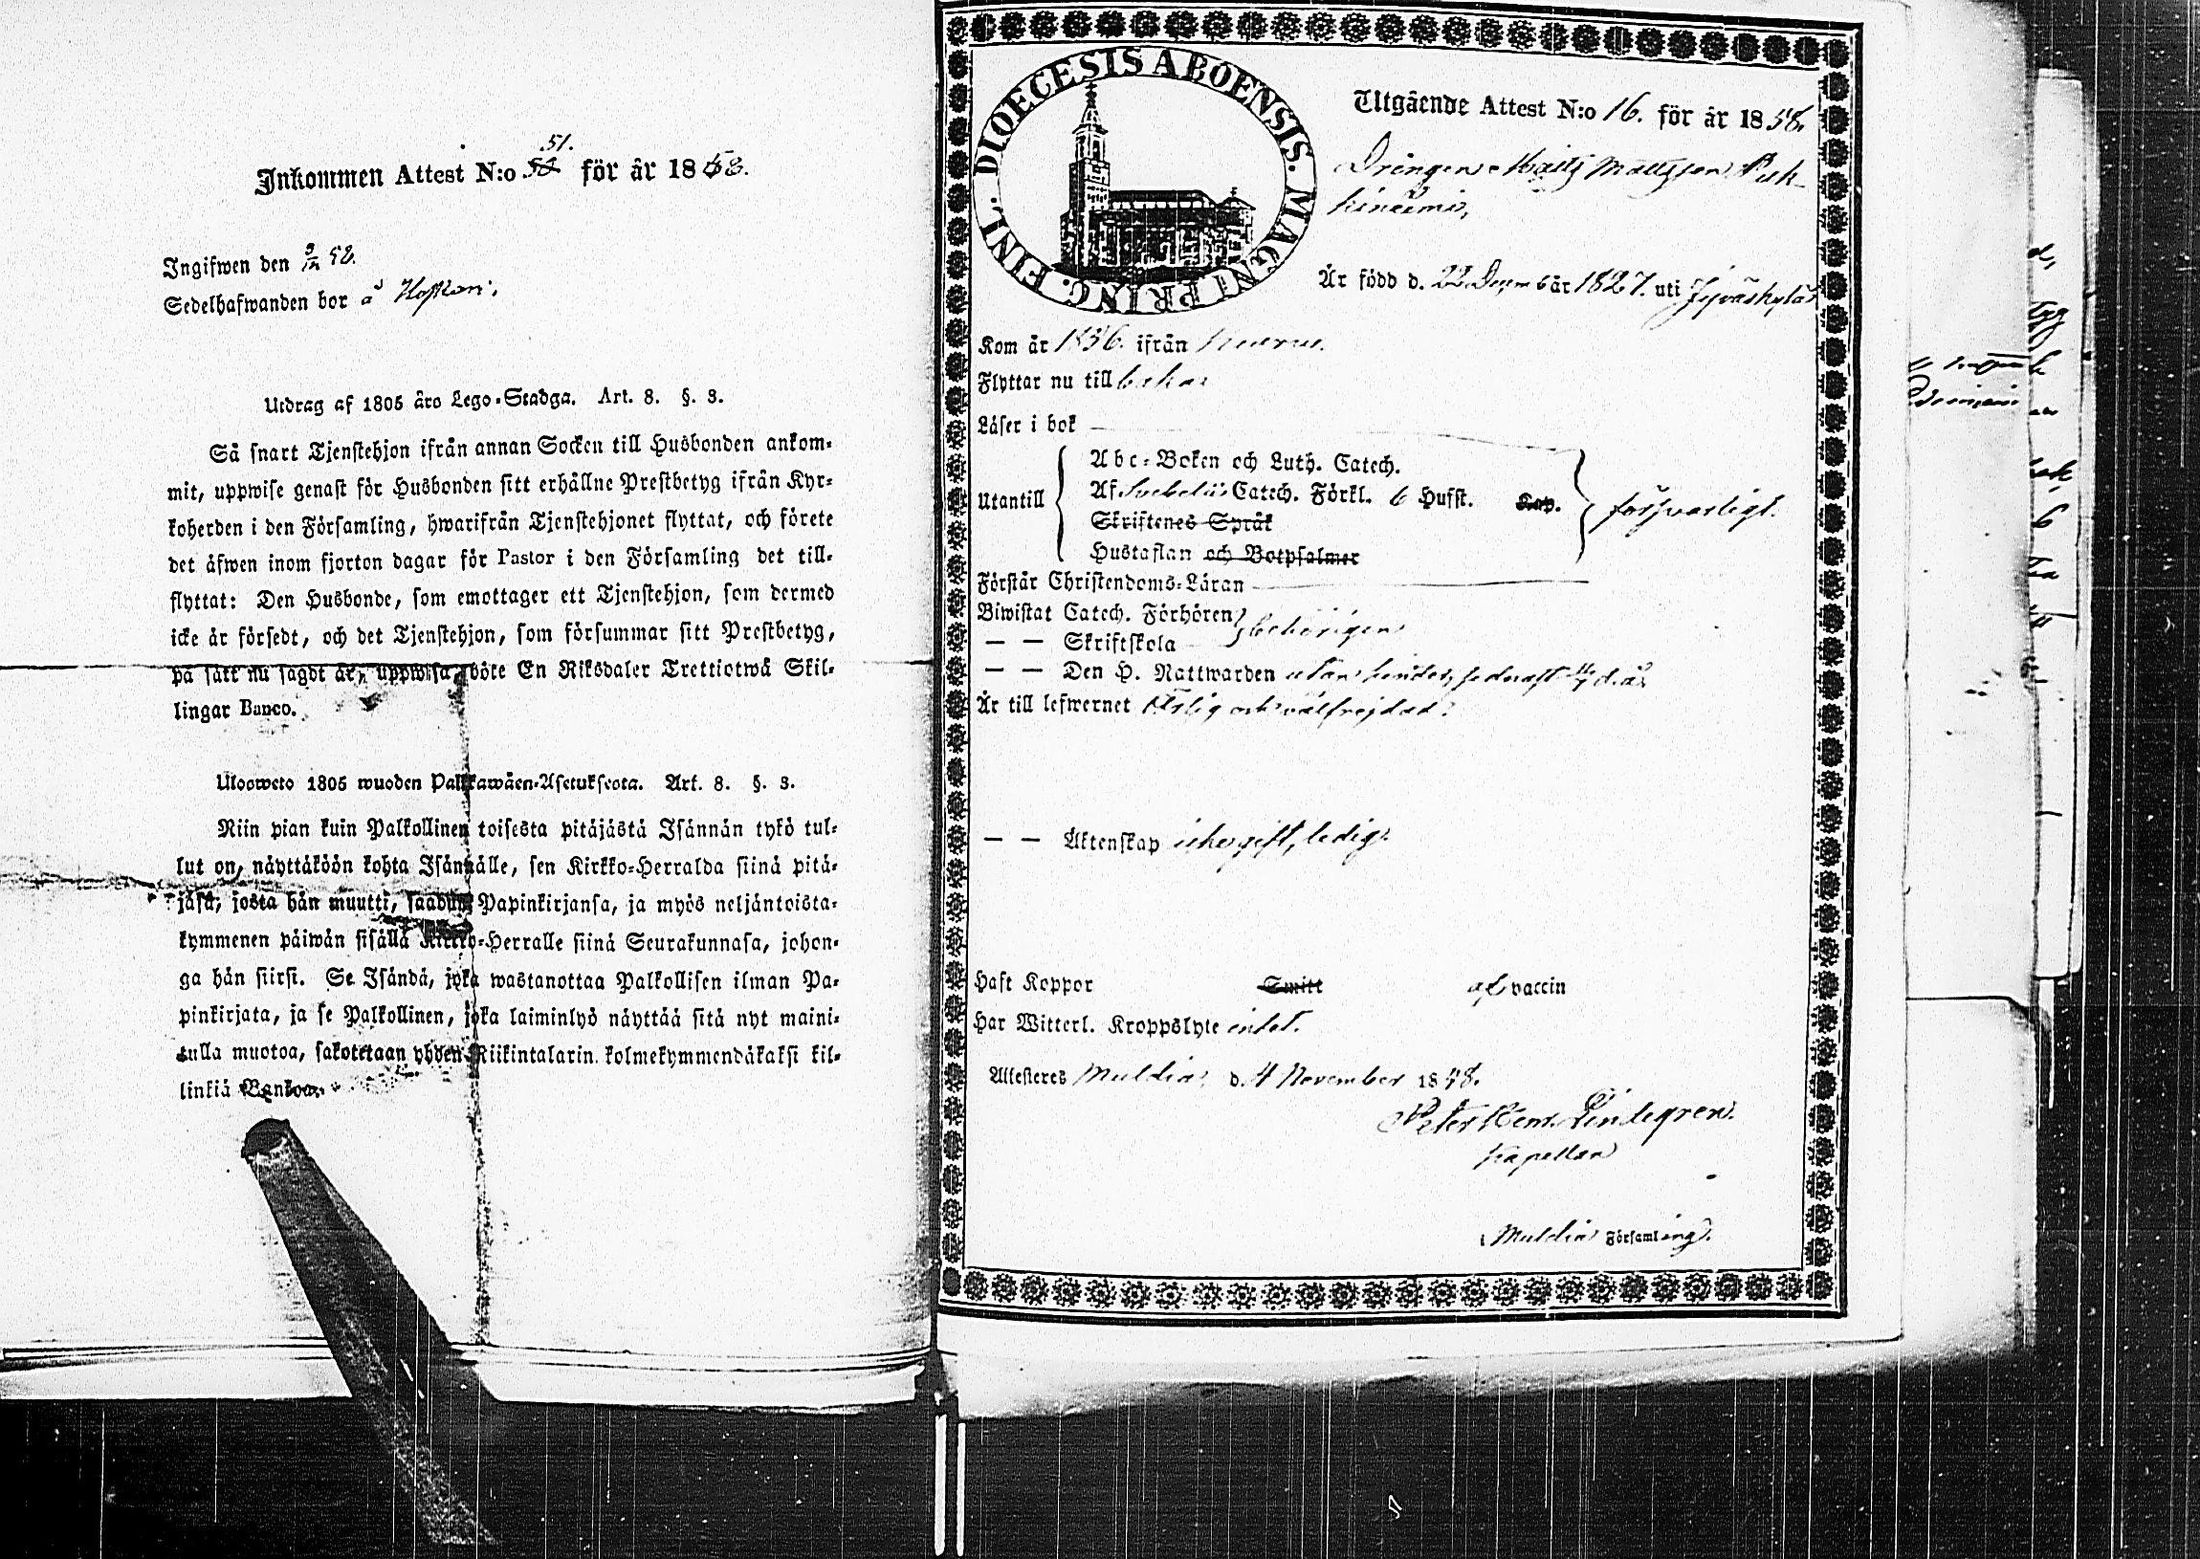 Inkommen Attest N:o 52 51. för år 1858.
Ingifwen den 3/12 58.
Sedelhafwanden bor å
Utdrag af 1805 års Lego-Stadga. Art. 8. §. 3.
Så snart Tjenstehjon ifrån annan Socken till Husbonden ankom-
mit, uppwise genast för Husbonden sitt erhållne Prestbetyg ifrån Kyr-
koherden i den Församling, hwarifrån Tjenstehjonet flyttat, och förete
det äfwen inom fjorton dagar för Pastor i den Församling det till-
flyttat: Den Husbonde, som emottager ett Tjenstehjon, som dermed
icke är försedt, och det Tjenstehjon, som försummar sitt Prestbetyg,
på sätt nu sagdt är, uppwisa, böte En Riksdaler Trettiotwå Skil-
lingar Banco.
Ulosweto 1805 wuoden Palkkawäen-Asetuksesta. Art. 8. §. 3.
Niin pian kuin Palkollinen toisesta pitäjästä Isännän tykö tul-
lut on, näyttäköön kohta Isännälle, sen Kirkko-Herralda siinä pitä-
jäsä, josta hän muutti, saadun Papinkirjansa, ja myös neljäntoista-
kymmenen päiwän sisällä Kirkko-Herralle siinä Seurakunnasa, johon-
ga hän siirsi. Se Isändä, joka wastanottaa Palkollisen ilman Pa-
pinkirjata, ja se Palkollinen, joka laiminlyö näyttää sitä nyt maini-
tulla muotoa, sakotetaan yhden Riikintalarin kolmekymmendäkaksi kil-
linkiä Bankoa.
DIOECESIS ABOENSIS. MAGNI PRINC. FINL.
Utgående Attest N:o 16. för år 1858.
Drängen Matts Mattsson
Är född d. 22 December 1827. uti Jyväskylä
Kom år 1836. ifrån
Flyttar nu till
Läser i bok
Utantill
Abc-Boken och Luth. Catech.
Af Svebelii Catech. Förkl. 6 Hufst. Cap.
Skriftenes Språk
Hustaflan och Botpsalmer
försvarligt.
Förstår Christendoms-Läran
Biwistat Catech. Förhören
— — Skriftskola
behörigen
— — Den H. Nattwarden utan hinder, sednast d. å.
Är till lefwernet ärlig och välfrejdad.
— — Äktenskap icke gift, ledig.
Haft Koppor Smitt af vaccin
Har Witterl. Kroppslyte intet.
Attesteres Muldia d. 4 November 1858.
Peter Lindegren.
Kapellan
Muldia Församling.